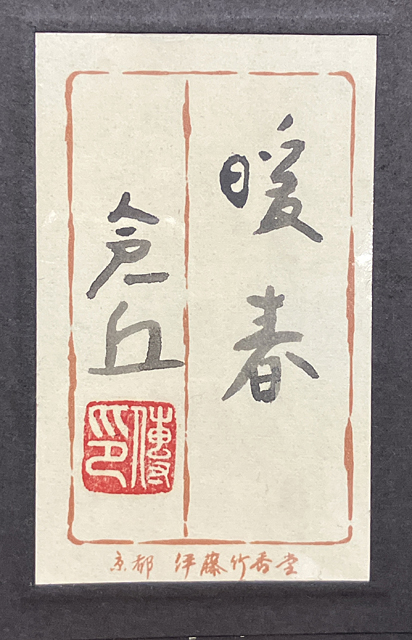 暖春
倉丘
傳印
京都 伊藤竹香堂